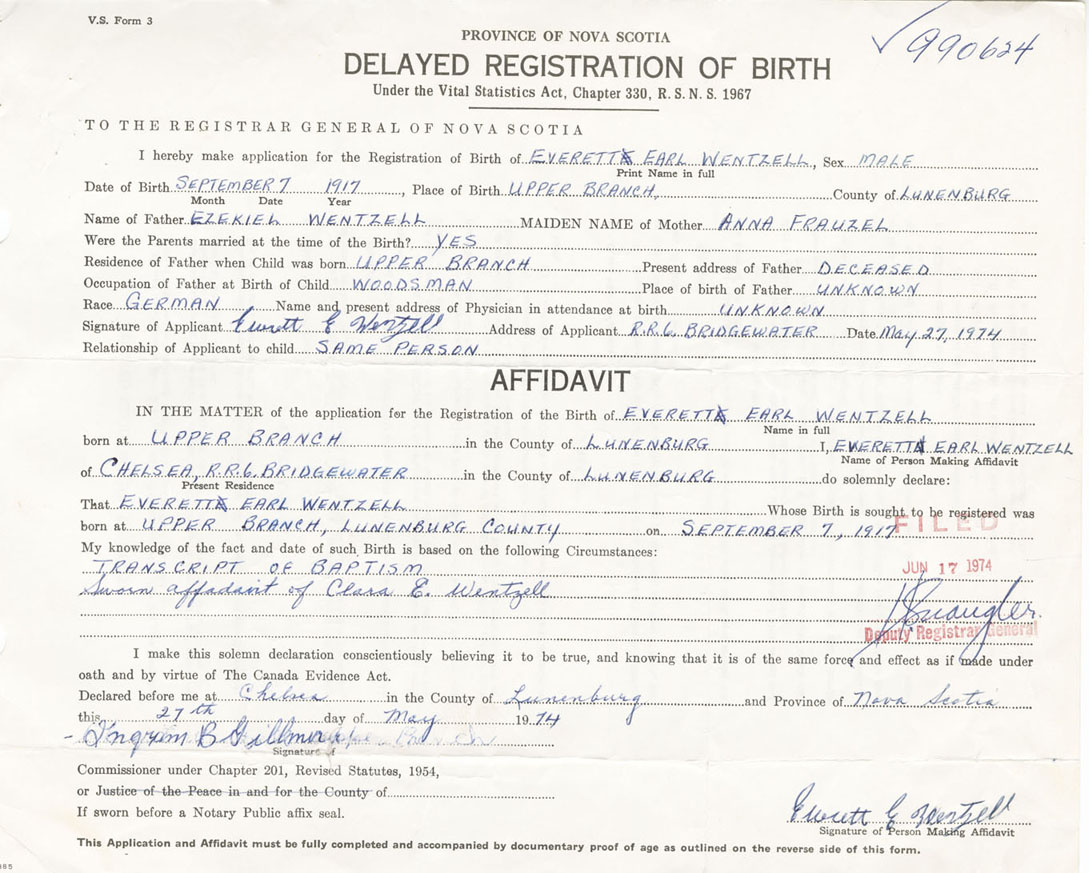 V.S. Form 3
990624
PROVINCE OF NOVA SCOTIA
DELAYED REGISTRATION OF BIRTH
Under the Vital Statistics Act, Chapter 330, R.S.N.S. 1967
TO THE REGISTRAR GENERAL OF NOVA SCOTIA
I hereby make application for the Registration of Birth of EVERETT EARL WENTZELL, Sex MALE
Print Name in full
Date of Birth SEPTEMBER 7 1917, Place of Birth UPPER BRANCH, County of LUNENBURG
Month Date Year
Name of Father EZEKIEL WENTZELL MAIDEN NAME of Mother ANNA FRAUZEL
Were the Parents married at the time of the Birth? YES
Residence of Father when Child was born UPPER BRANCH Present address of Father DECEASED
Occupation of Father at Birth of Child WOODSMAN Place of birth of Father UNKNOWN
Race GERMAN Name and present address of Physician in attendance at birth UNKNOWN
Signature of Applicant Everett E Wentzell Address of Applicant R.R.6 BRIDGEWATER Date May 27, 1974
Relationship of Applicant to child SAME PERSON
AFFIDAVIT
IN THE MATTER of the application for the Registration of the Birth of EVERETT EARL WENTZELL
Name in full
born at UPPER BRANCH in the County of LUNENBURG I, EVERETT EARL WENTZELL
Name of Person Making Affidavit
of CHELSEA, R.R.6, BRIDGEWATER in the County of LUNENBURG do solemnly declare:
Present Residence
That EVERETT EARL WENTZELL Whose Birth is sought to be registered was
born at UPPER BRANCH, LUNENBURG COUNTY on SEPTEMBER 7, 1917
FILED
My knowledge of the fact and date of such Birth is based on the following Circumstances:
TRANSCRIPT OF BAPTISM
JUN 17 1974
Sworn affadavit of Clara E. Wentzell
Deputy Registrar General
I make this solemn declaration conscientiously believing it to be true, and knowing that it is of the same force and effect as if made under
oath and by virtue of The Canada Evidence Act.
Declared before me at Chelsea in the County of Lunenburg and Province of Nova Scotia
this 27th day of May 1974
Ingram B Gillmor
Signature of
Commissioner under Chapter 201, Revised Statutes, 1954,
or Justice of the Peace in and for the County of
If sworn before a Notary Public affix seal.
Everett E Wentzell
Signature of Person Making Affidavit
This Application and Affidavit must be fully completed and accompanied by documentary proof of age as outlined on the reverse side of this form.